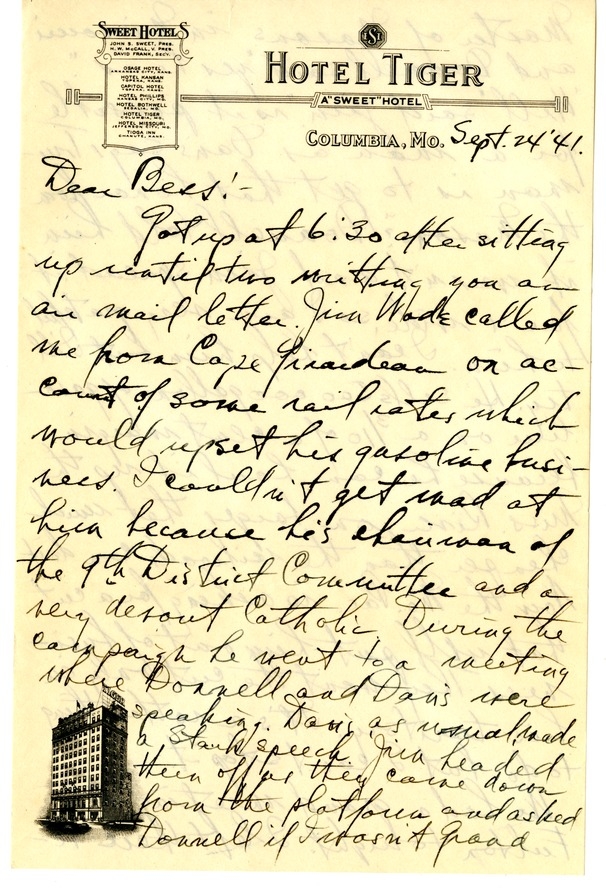 SWEET HOTELS
JOHN S. SWEET, PRES.
H. W. McCALL, V. PRES.
DAVID FRANK, SECY.
OSAGE HOTEL
ARKANSAS CITY, KANS.
HOTEL KANSAN
TOPEKA, KANS.
CAPITOL HOTEL
TOPEKA, KANS.
HOTEL PHILLIPS
KANSAS CITY, MO.
HOTEL BOTHWELL
SEDALIA, MO.
HOTEL TIGER
COLUMBIA, MO.
HOTEL MISSOURI
JEFFERSON CITY, MO.
TIOGA INN
CHANUTE, KANS.
HOTEL TIGER
A "SWEET" HOTEL
COLUMBIA, MO. Sept. 24 '41.
Dear Bess:-
Got up at 6:30 after sitting
up until two writting you an
air mail letter. Jim Wade called
me from Cape Girardeau on ac-
count of some rail rates which
would upset his gasoline busi-
ness. I couldn't get mad at
him because he's chairman of
the 9th District Committee and a
very devout Catholic. During the
campaign he went to a meeting
where Donnell and Davis were
speaking. Davis, as usual, made
a speech. Jim headed
them off as they came down
from the platform and asked
Donnell if I wasn't Grand